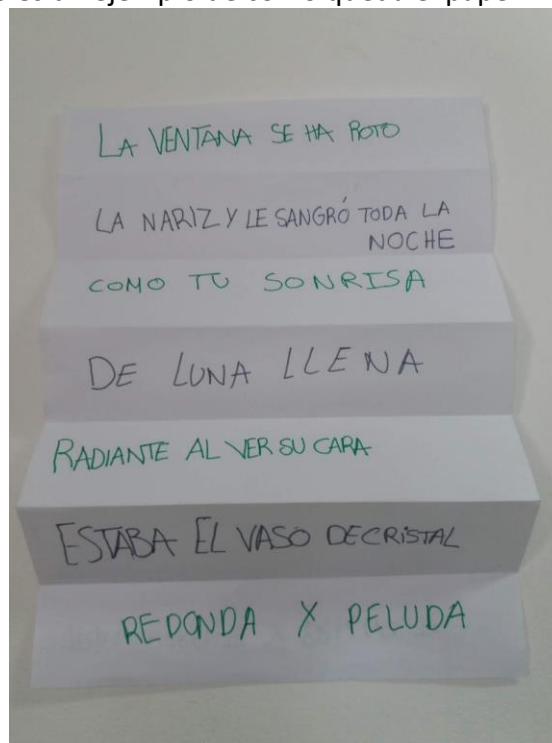 LA VENTANA SE HA ROTO
LA NARIZ Y LE SANGRÓ TODA LA
NOCHE
COMO TU SONRISA
DE LUNA LLENA
RADIANTE AL VER SU CARA
ESTABA EL VASO DE CRISTAL
REDONDA Y PELUDA